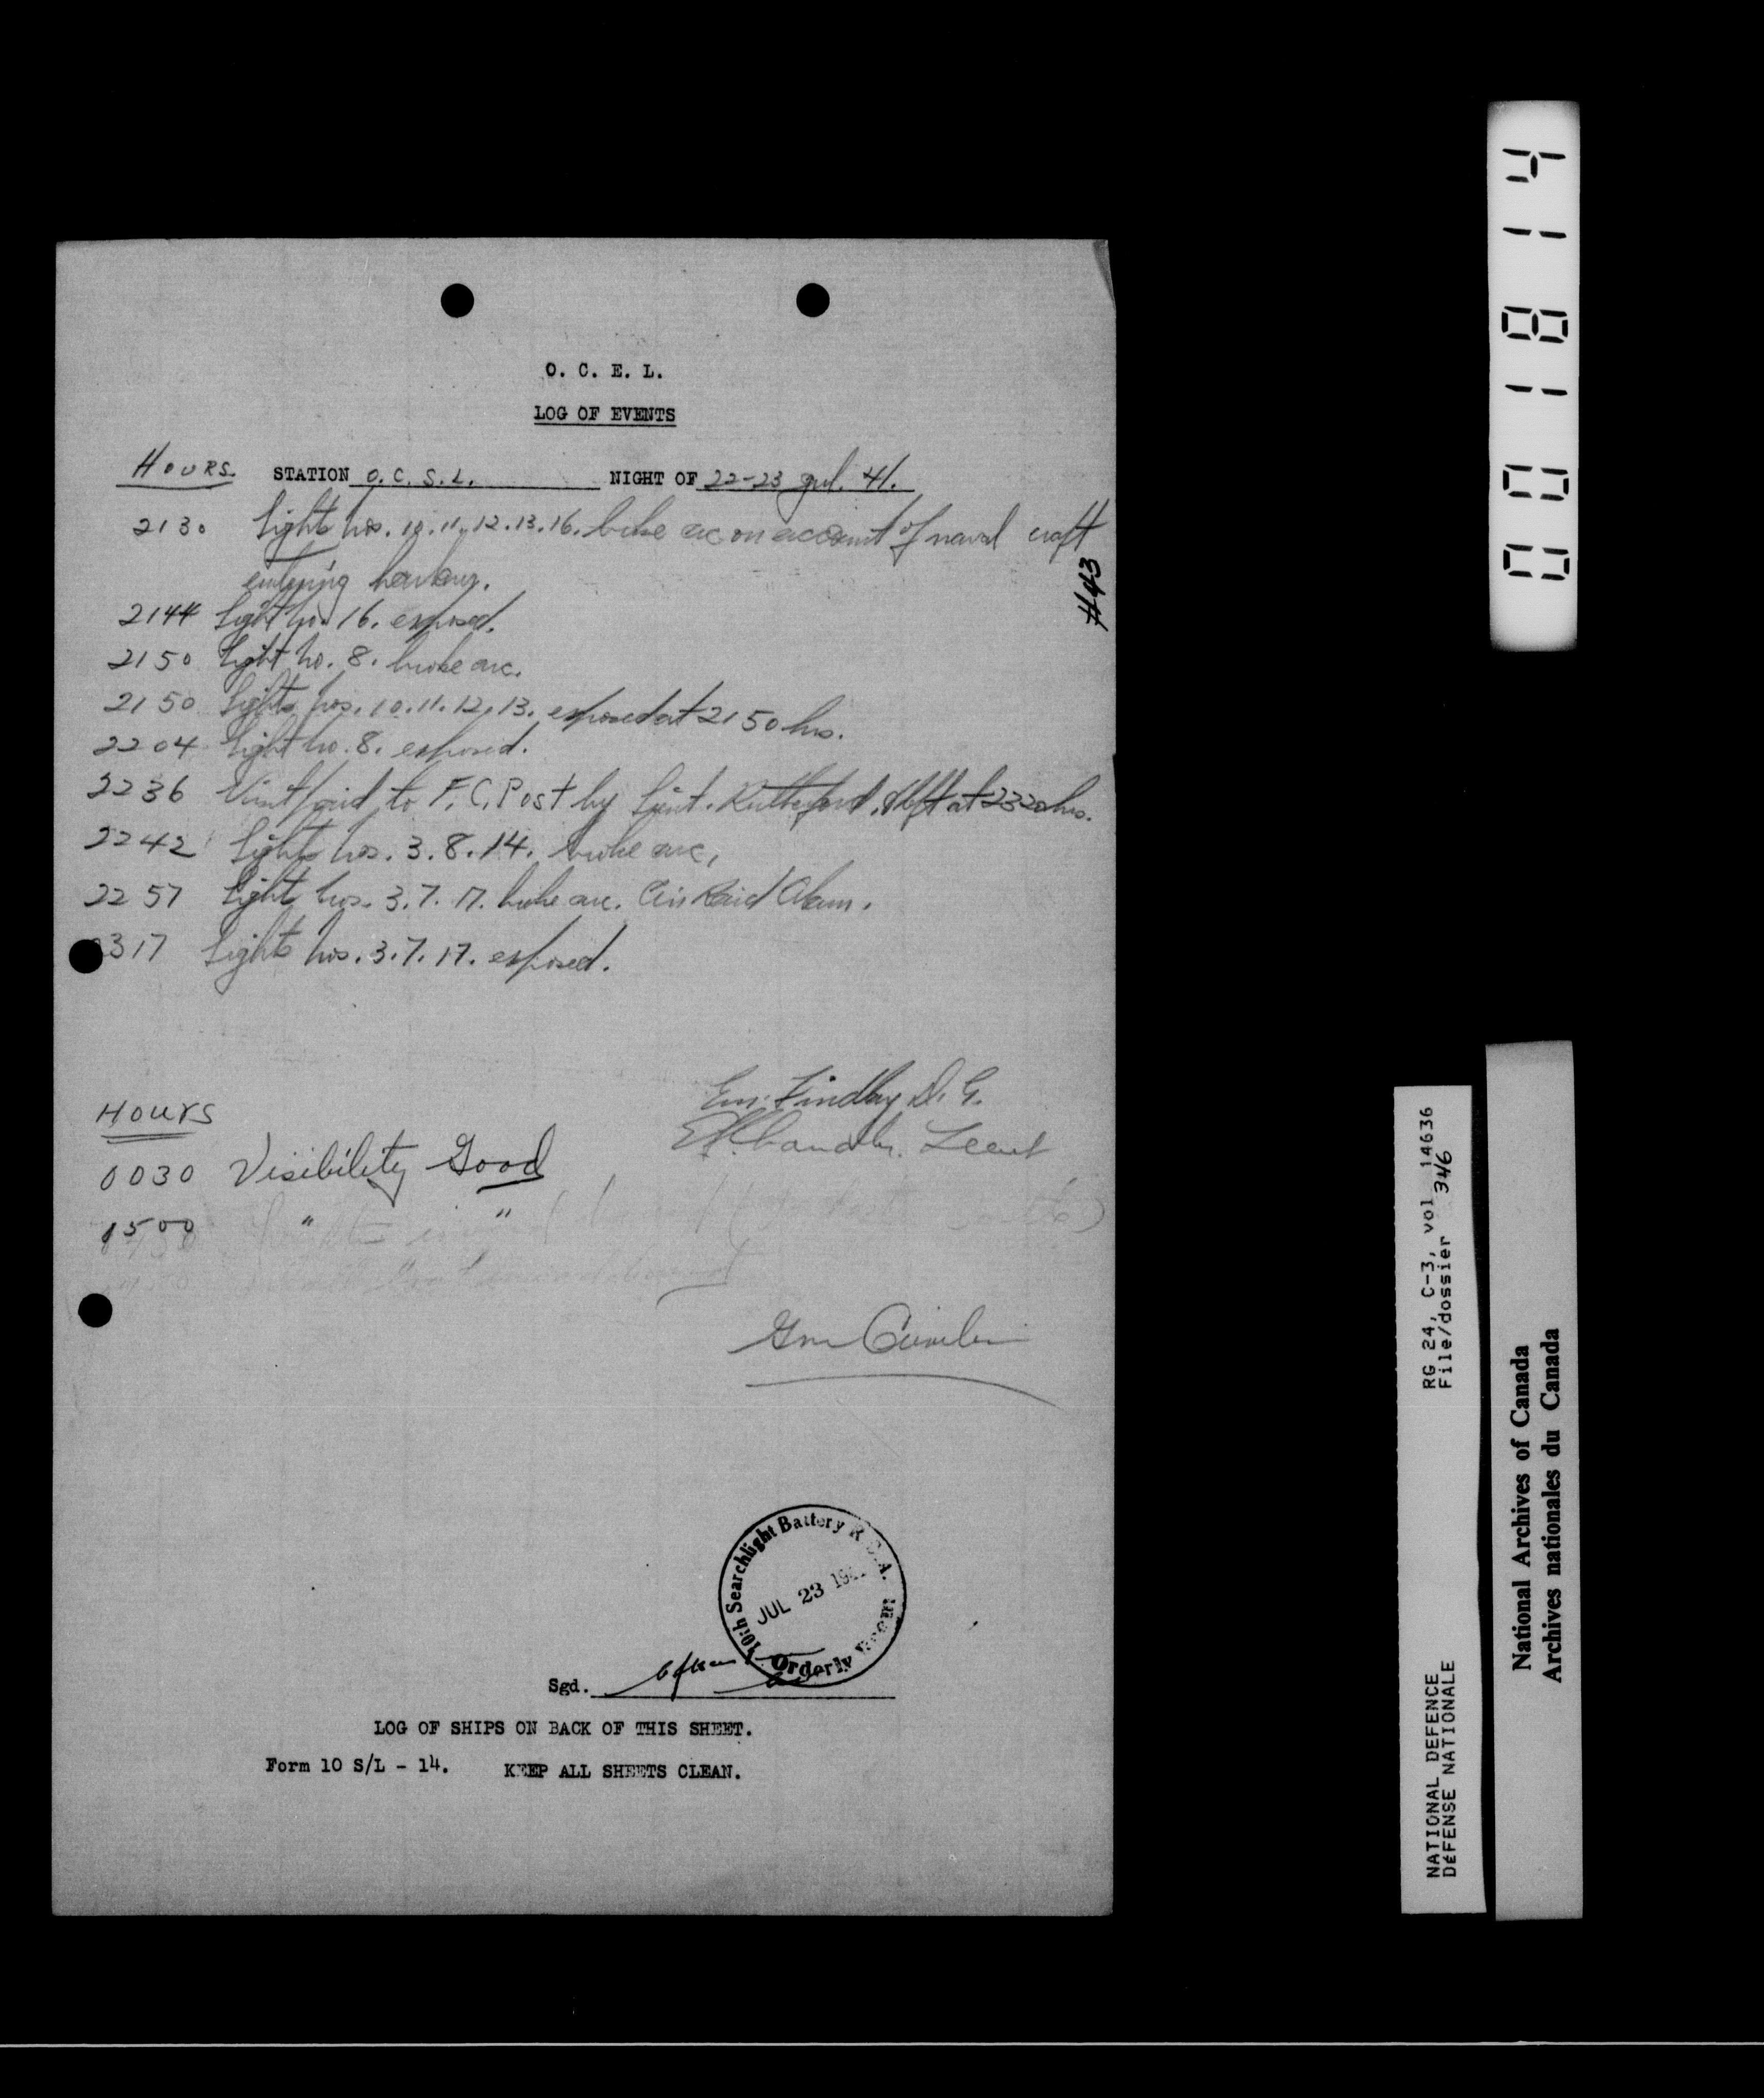 O. C. E. L.
LOG OF EVENTS
HOURS. STATION O. C. S. L. NIGHT OF 22-23 Jul. 41.
2130 Lights Nos. 10.11.12.13.16. broke arc on account of naval craft
entering harbour.
#43
2144 Light No. 16. exposed.
2150 Light No. 8. broke arc.
2150 Lights Nos. 10.11.12.13. exposed at 2150 hrs.
2204 Light No. 8. exposed.
2236 Visit paid to F.C. Post by Lieut. Rutherford. & left at 2320 hrs.
2242 Lights Nos. 3.8.14. broke arc.
2257 Light Nos. 3.7.17. broke arc. Air Raid Alarm.
2317 Lights Nos. 3.7.17. exposed.
Findlay
Lieut
HOURS
0030 Visibility Good
1500 " "
Gnr
10th Searchlight Battery R.C.A.
JUL 23 194
Orderly Room
Sgd.
LOG OF SHIPS ON BACK OF THIS SHEET.
Form 10 S/L - 14. KEEP ALL SHEETS CLEAN.
001814
RG 24, C-3, vol 14636
File/dossier 346
NATIONAL DEFENCE
DÉFENSE NATIONALE
National Archives of Canada
Archives nationales du Canada